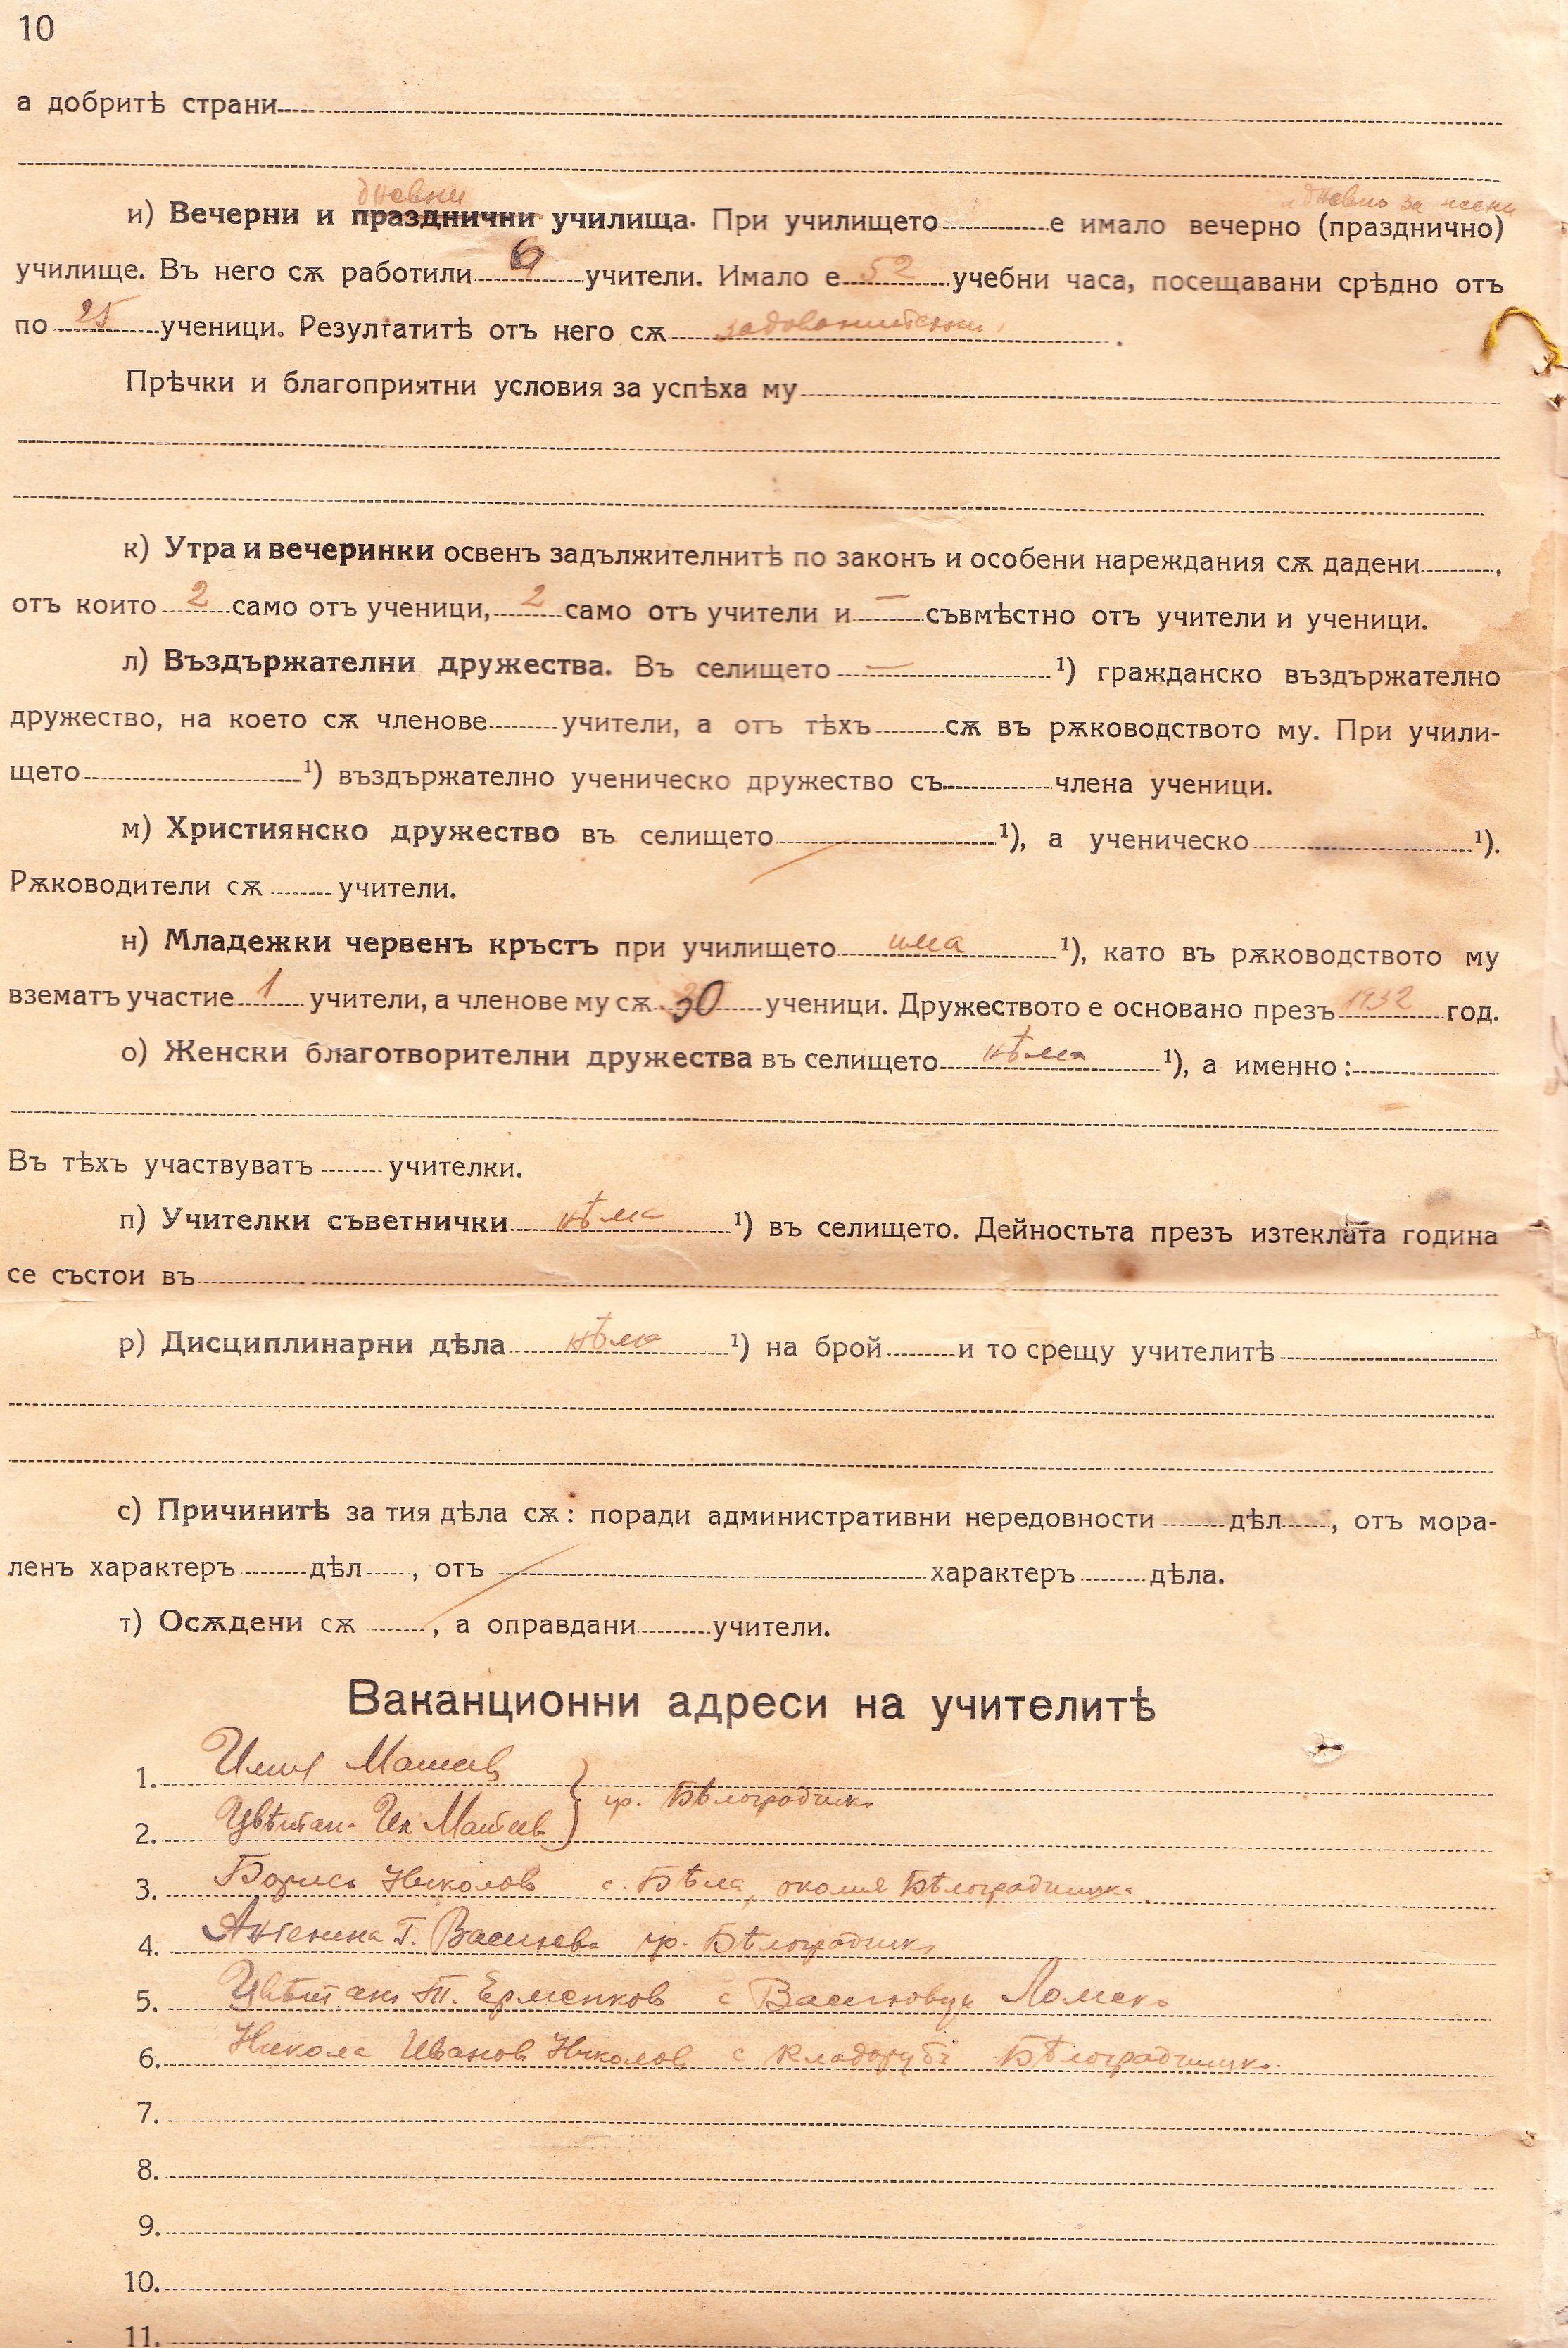 10
а добритѣ страни
дневни
и дневно за
и) Вечерни и празднични училища. При училището е имало вечерно (празднично)
училище. Въ него сѫ работили 6 учители. Имало е 52 учебни часа, посещавани срѣдно отъ
по 25 ученици. Резултатитѣ отъ него сѫ задоволителни.
Прѣчки и благоприятни условия за успѣха му
к) Утра и вечеринки освенъ задължителнитѣ по законъ и особени нареждания сѫ дадени ,
отъ които 2 само отъ ученици, 2 само отъ учители и — съвмѣстно отъ учители и ученици.
л) Въздържателни дружества. Въ селището — ¹) гражданско въздържателно
дружество, на което сѫ членове учители, а отъ тѣхъ сѫ въ рѫководството му. При учили-
щето ¹) въздържателно ученическо дружество съ члена ученици.
м) Християнско дружество въ селището ¹), а ученическо ¹).
Рѫководители сѫ учители.
н) Младежки червенъ кръстъ при училището има ¹), като въ рѫководството му
вземать участие 1 учители, а членове му сѫ 30 ученици. Дружеството е основано презъ 1932 год.
о) Женски благотворителни дружества въ селището нѣма ¹), а именно:
Въ тѣхъ участвуватъ учителки.
п) Учителки съветнички нѣма ¹) въ селището. Дейностьта презъ изтеклата година
се състои въ
р) Дисциплинарни дѣла нѣма ¹) на брой и то срещу учителитѣ
с) Причинитѣ за тия дѣла сѫ: поради административни нередовности дѣл , отъ мора-
ленъ характеръ дѣл , отъ характеръ дѣла.
т) Осѫдени сѫ , а оправдани учители.
Ваканционни адреси на учителитѣ
1. Илия Матеев
2. Цвѣтан Ил Матеев } гр. Бѣлоградчик
3. Борисъ Николов с. Бѣла, околия Бѣлоградчишка.
4. Антенина Г. Василева гр. Бѣлоградчик
5. Цвѣтан Т. Ерменков с Василовци Ломско
6. Никола Иванов Николов с Кладорубъ Бѣлоградчишко.
7.
8.
9.
10.
11.